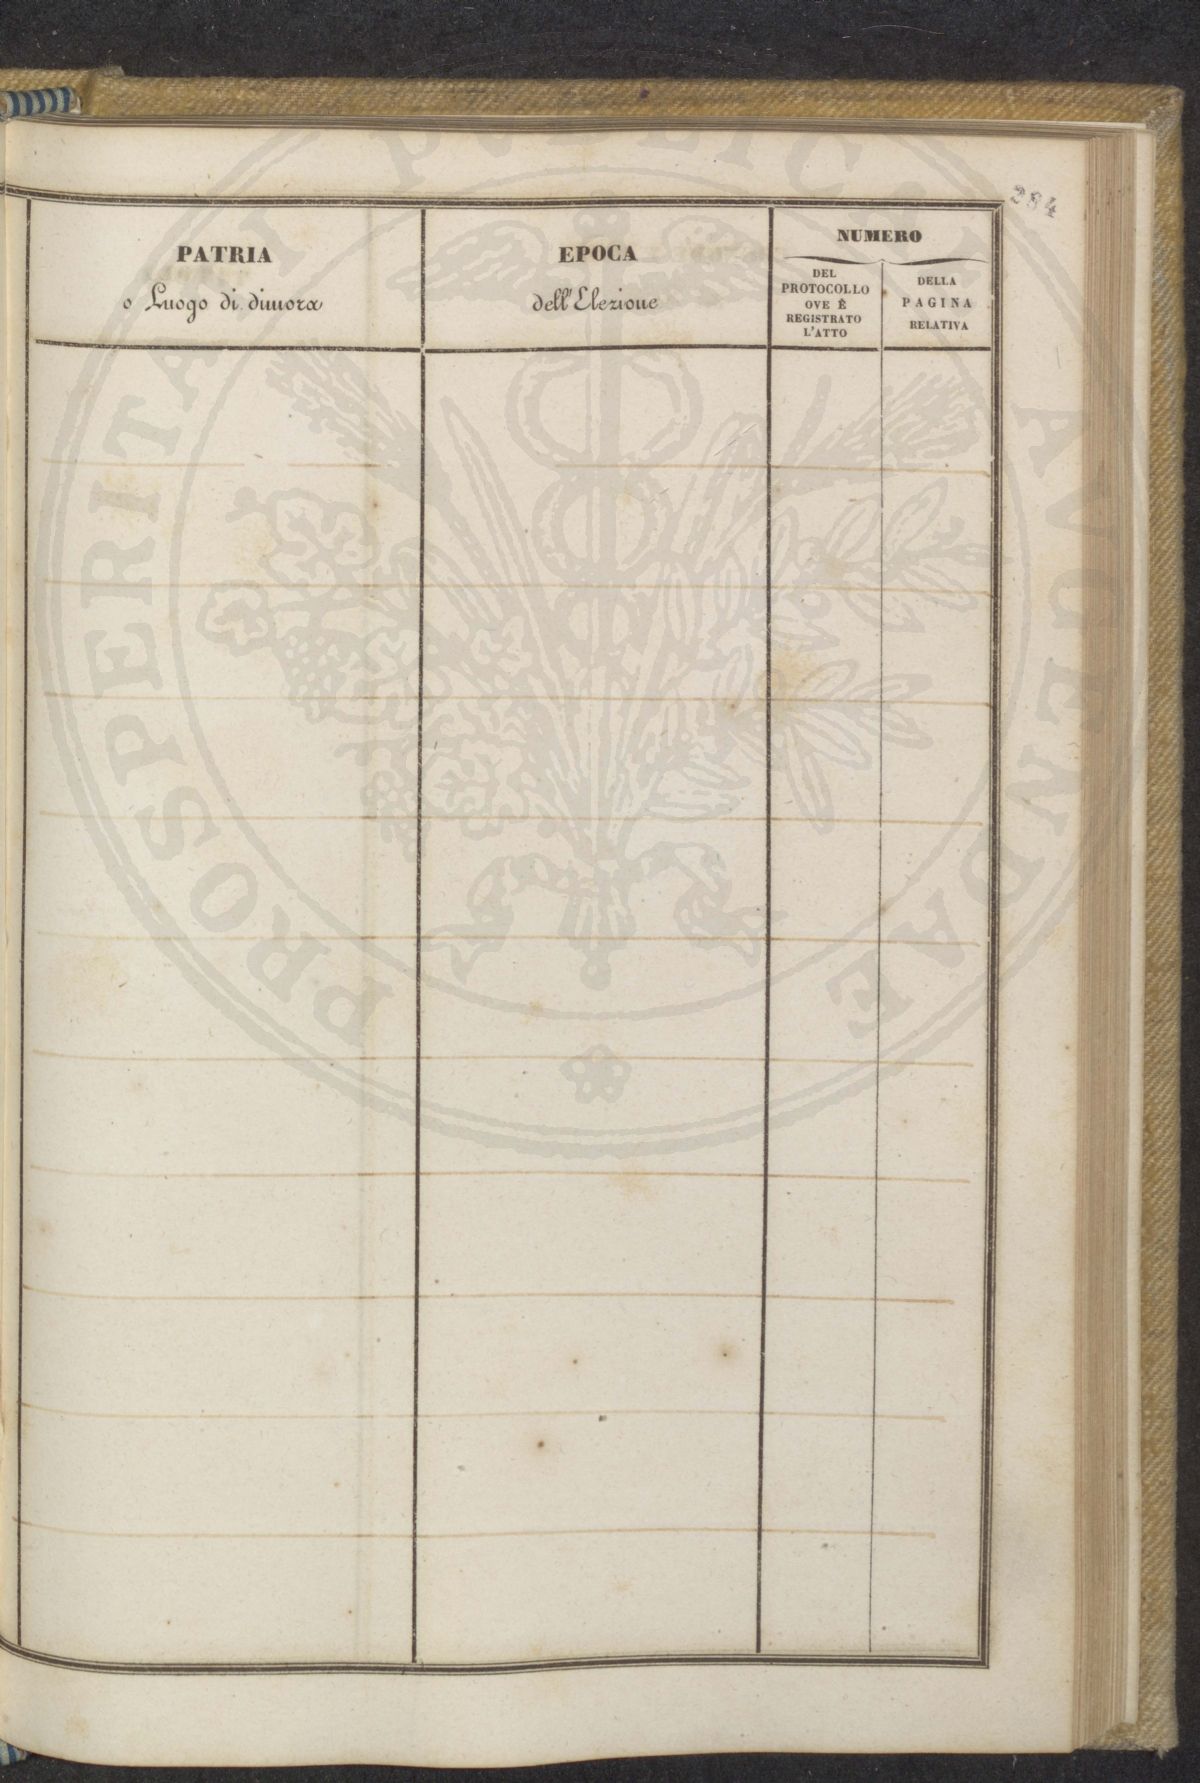 284
PATRIA
o Luogo di dimora
EPOCA
dell'Elezione
NUMERO
DEL
PROTOCOLLO
OVE È
REGISTRATO
L'ATTO
DELLA
PAGINA
RELATIVA
PROSPERITATI PUBLICAE AUGENDAE